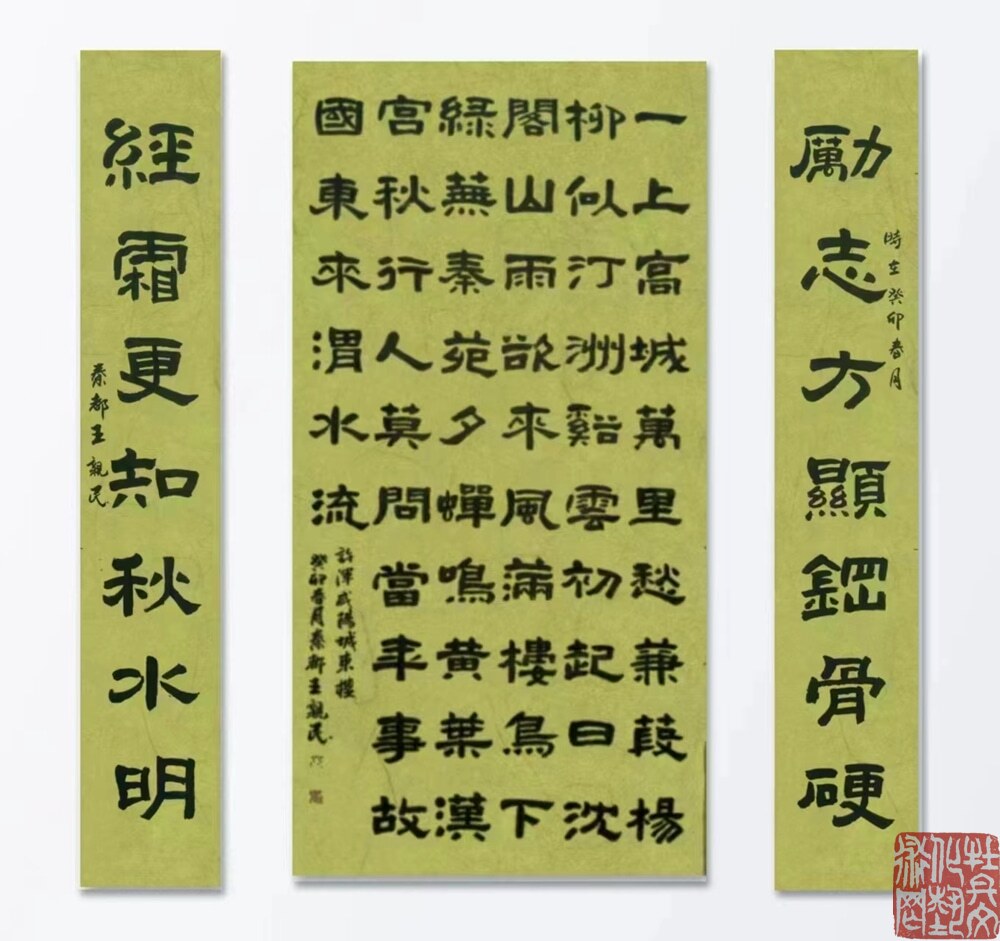 勵志方顯鋼骨硬
時在癸卯春月
一上高城萬里愁蒹葭楊
柳似汀洲谿雲初起日沈
閣山雨欲來風滿樓鳥下
綠蕪秦苑夕蟬鳴黃葉漢
宮秋行人莫問當年事故
國東來渭水流
許渾咸陽城東樓
癸卯春月秦都王親民
經霜更知秋水明
秦都王親民